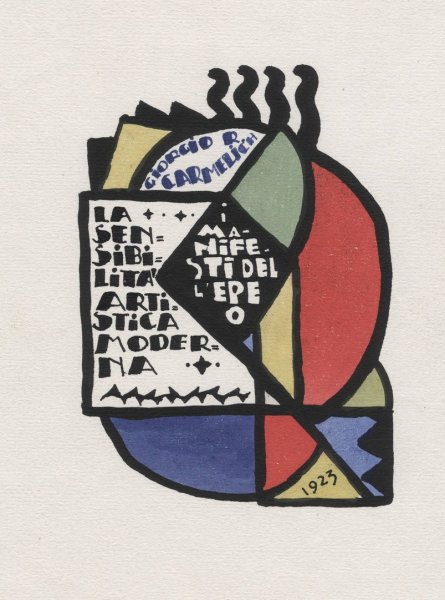 GIORGIO R
CARMELICH
LA
SEN=
SIBI=
LITA'
ARTI=
STICA
MODER=
NA
i
MA-
NiFE-
STi DEL
L'EPE
O
1923